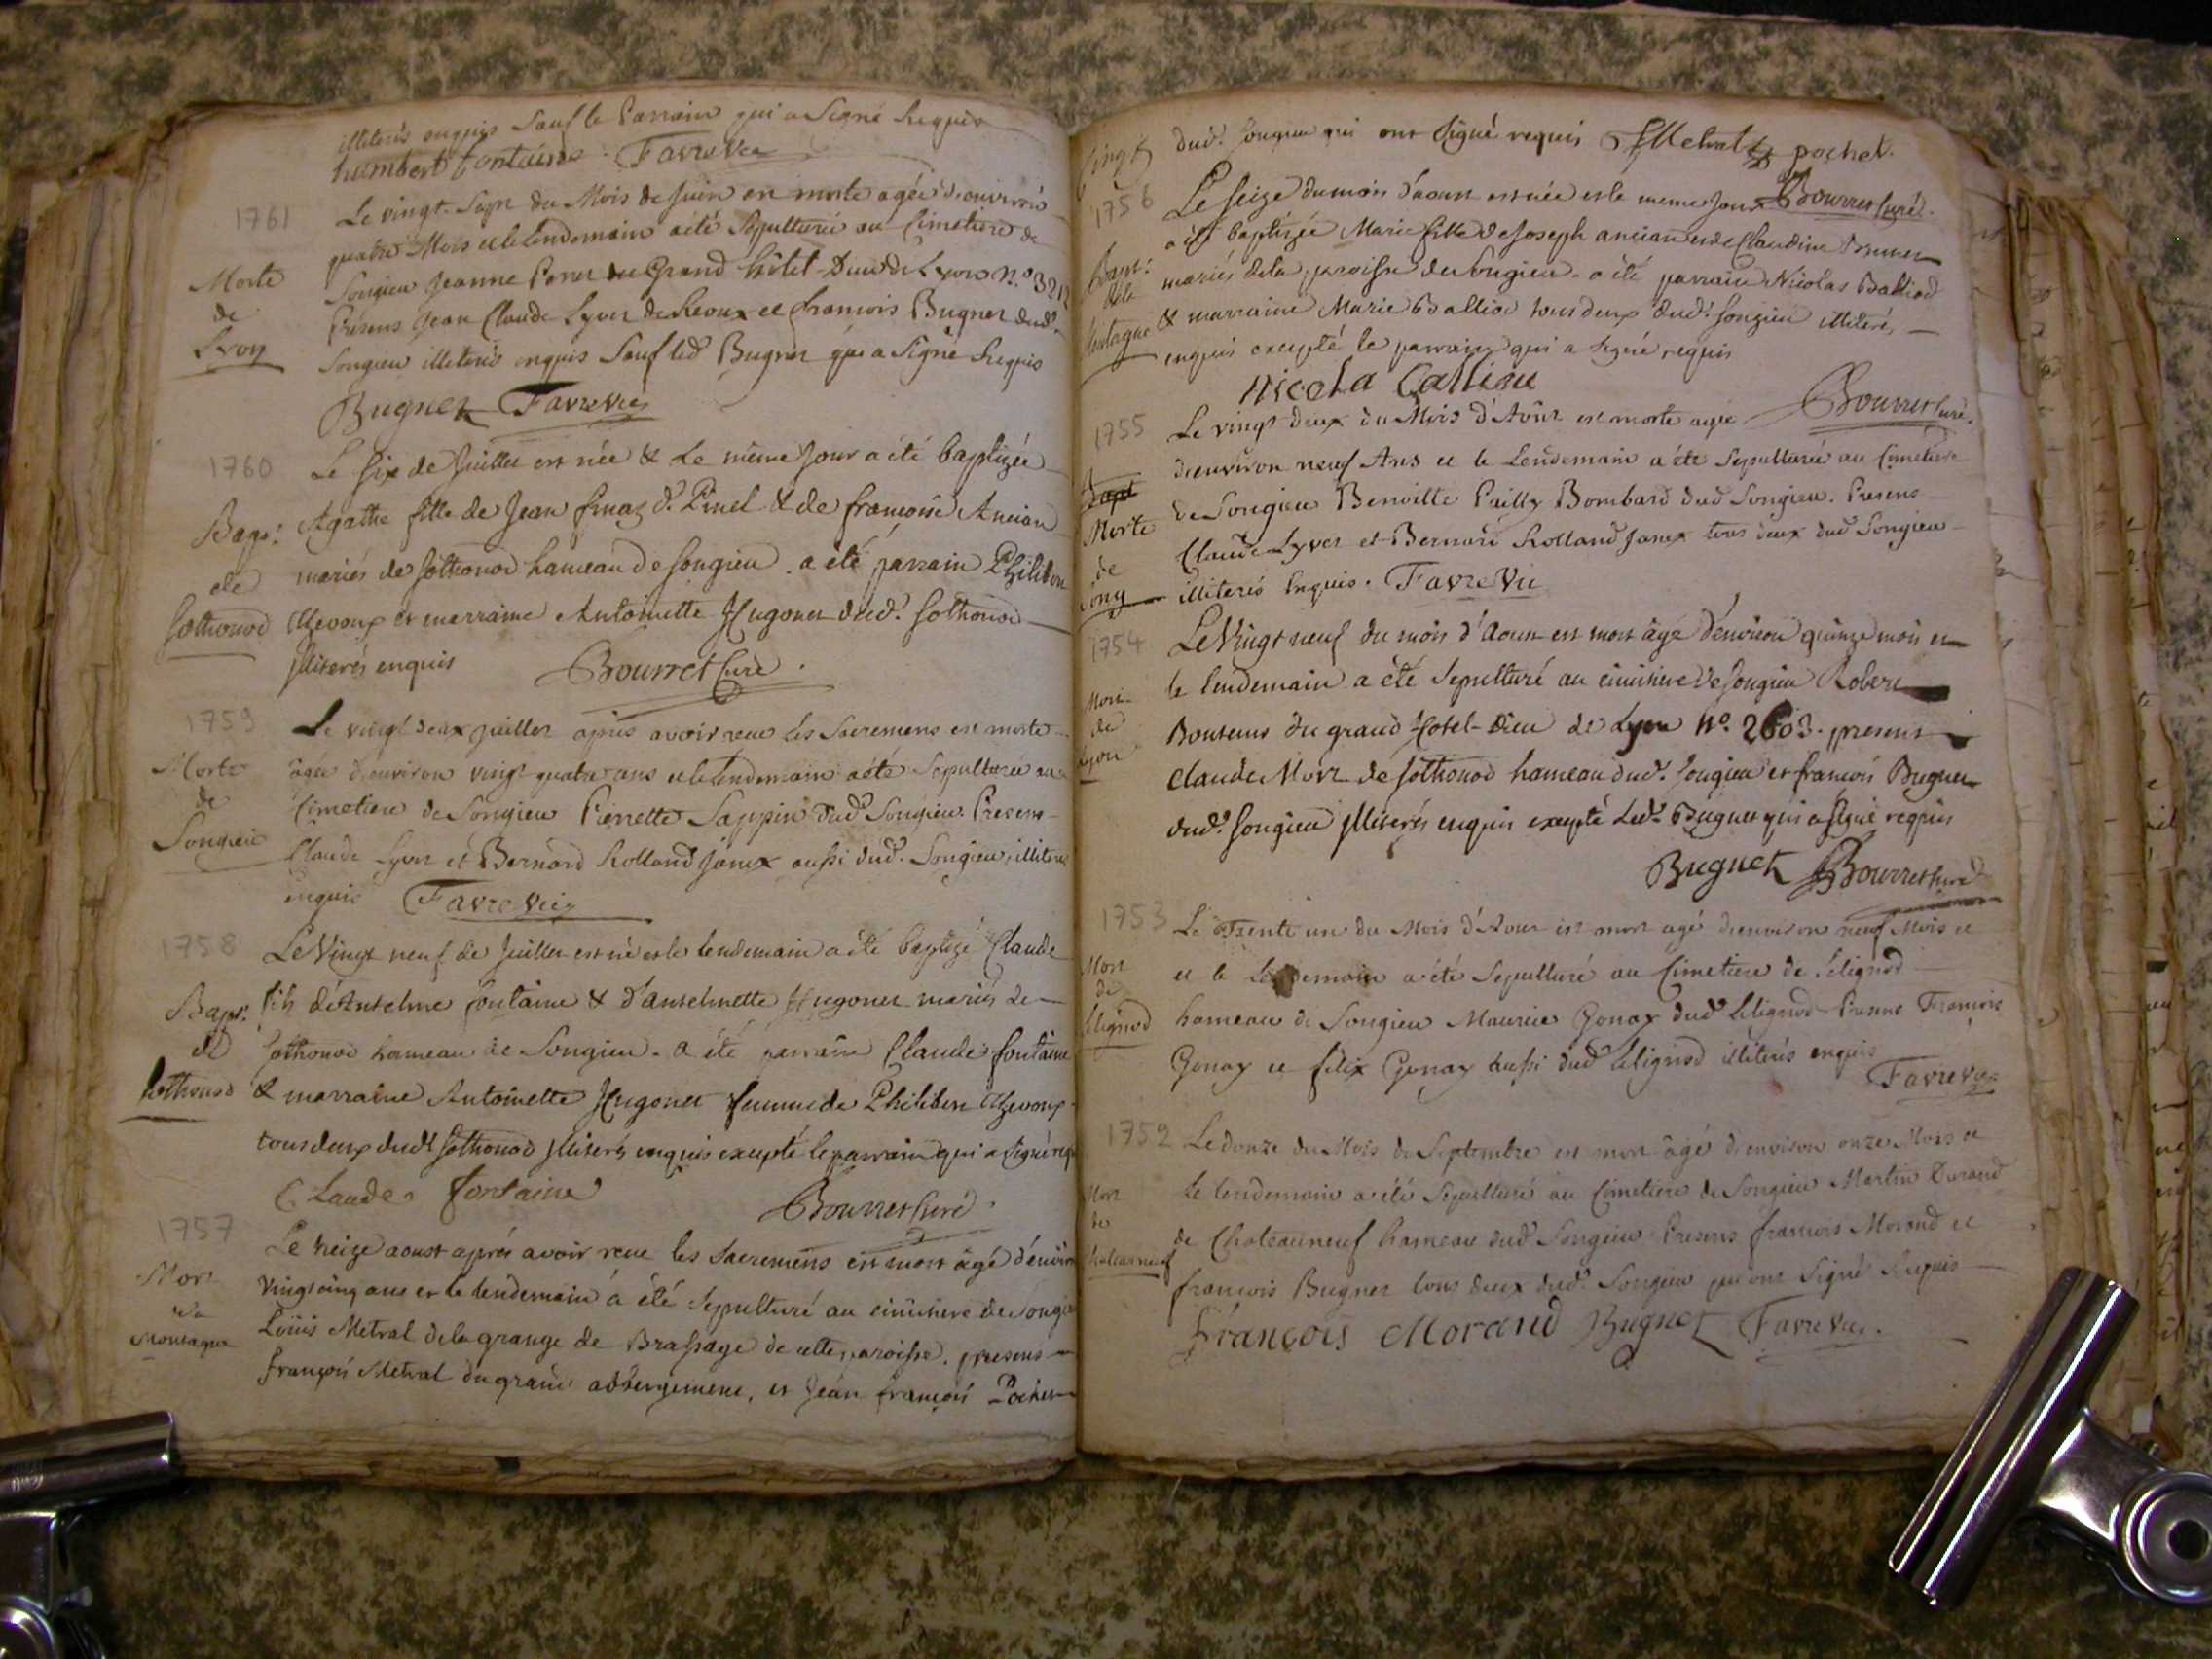 illiterés enquis Sauf le Parrain qui a Signé Requis
humbert fontaine Favre Vic
1761
Le vingt-Sept du Mois de Juin est morte agée d'environ
quatre Mois et le lendemain a été Sepulturée au Cimetiere de
Morte
de
Lyon
Songieu Jeanne du Grand hôtel-Dieu de Lyon N.º
Presens Jean Claude Lyvet et francois Bugnet dud.
Songieu illiterés enquis Sauf led Bugnet qui a Signé Requis
Bugnet Favre Vic
1760
Le Six de Juillet est née & Le même Jour a été baptizée
Bapt:
de
Sothonod
Agathe fille de Jean finaz d. Pinel & de francoise Ancian
mariés de Sothonod hameau de Songieu. a été parrain Philibert
Thevoux et marraine Antoinette Hugonet dud.t Sothonod
jlliterés enquis Bourret Curé.
1759
Le vingt deux juillet après avoir reçu les Sacremens est morte
Morte
de
Songieu
agée d'environ vingt quatre ans et le lendemain a été Sepulturée au
Cimetiere de Songieu Pierrette Sappin dud Songieu. Presens
Claude Lyvet et Bernard Rolland Janex aussi dud. Songieu, illiterés
enquis Favre Vic
1758
Le Vingt neuf de Juillet est né et le lendemain a été baptizé Claude
Bapt.
de
Sothonod
fils d'Antelme fontaine & d'antelmette Hugonet mariés de
Sothonod hameau de Songieu. a été parrain Claude fontaine
& marraine Antoinette Hugonet femme de Philibert Thevoux
tous deux dudt Sothonod jlliterés enquis excepté le parrain qui a signé req
Claude fontaine Bourret Curé.
1757
Le treize aoust après avoir reçu les Sacremens est mort âgé d'environ
Mort
de
Montagne
vingt cinq ans et le lendemain a été Sepulturé au cimitiere de Songieu
Loüis Metral de la grange de Brassage de cette paroisse. presens
françois Metral du grand abbergement, et Jean françois Pochet
dud.t Songieu qui ont signé requis Metral pochet.
1756
Le Seize du mois d'aoust est née et le meme jour Bourret Curé.
Bapt:
de la
Montagne
a été baptizée Marie fille de Joseph ancian et de Claudine
mariés de la paroisse de Songieu. a été parrain Nicolas Balliod
& marraine Marie Balliod tous deux dud.t Songieu illiterés,
enquis excepté le parrain qui a signé requis
Nicola Bourret Curé.
1755
Le vingt deux du Mois d'Août est morte agée
Bapt
Morte
de
Song
d'environ neuf Ans et le Lendemain a été Sepulturée au Cimetiere
de Songieu Benoitte Pailly Bombard dud Songieu. Presens
Claude Lyvet et Bernard Rolland Janex tous deux dud Songieu
illiterés Enquis. Favre Vic
1754
Le Vingt neuf du mois d'aoust est mort âgé d'environ quinze mois et
Mort
de
Lyon
le lendemain a été Sepulturé au cimitiere de Songieu Robert
du grand Hotel-Dieu de Lyon Nº. 2603. presens
Claude de Sothonod hameau dud.t Songieu et françois Bugnet
dud.t Songieu jlliterés enquis excepté Led.t Bugnet qui a signé requis
Bugnet Bourret Curé
1753
Le Trente un du Mois d'Aout est mort agé d'environ neuf Mois et
Mort
de
Lilignod
et le Lendemain a été Sepulturé au Cimetiere de Lilignod
hameau de Songieu Maurice Gonay dud Lilignod Presens Francois
Gonay et felix Gonay aussi dud Lilignod illiterés enquis
Favre Vic
1752
Le douze du Mois de Septembre est mort âgé d'environ onze Mois et
Mort
de
Chateauneuf
le lendemain a été Sepulturé au Cimetiere de Songieu Martin Durand
de Chateauneuf hameau dud Songieu Presens francois Morand et
francois Bugnet tous deux dud Songieu qui ont Signé Requis
françois Morand Bugnet Favre Vic.